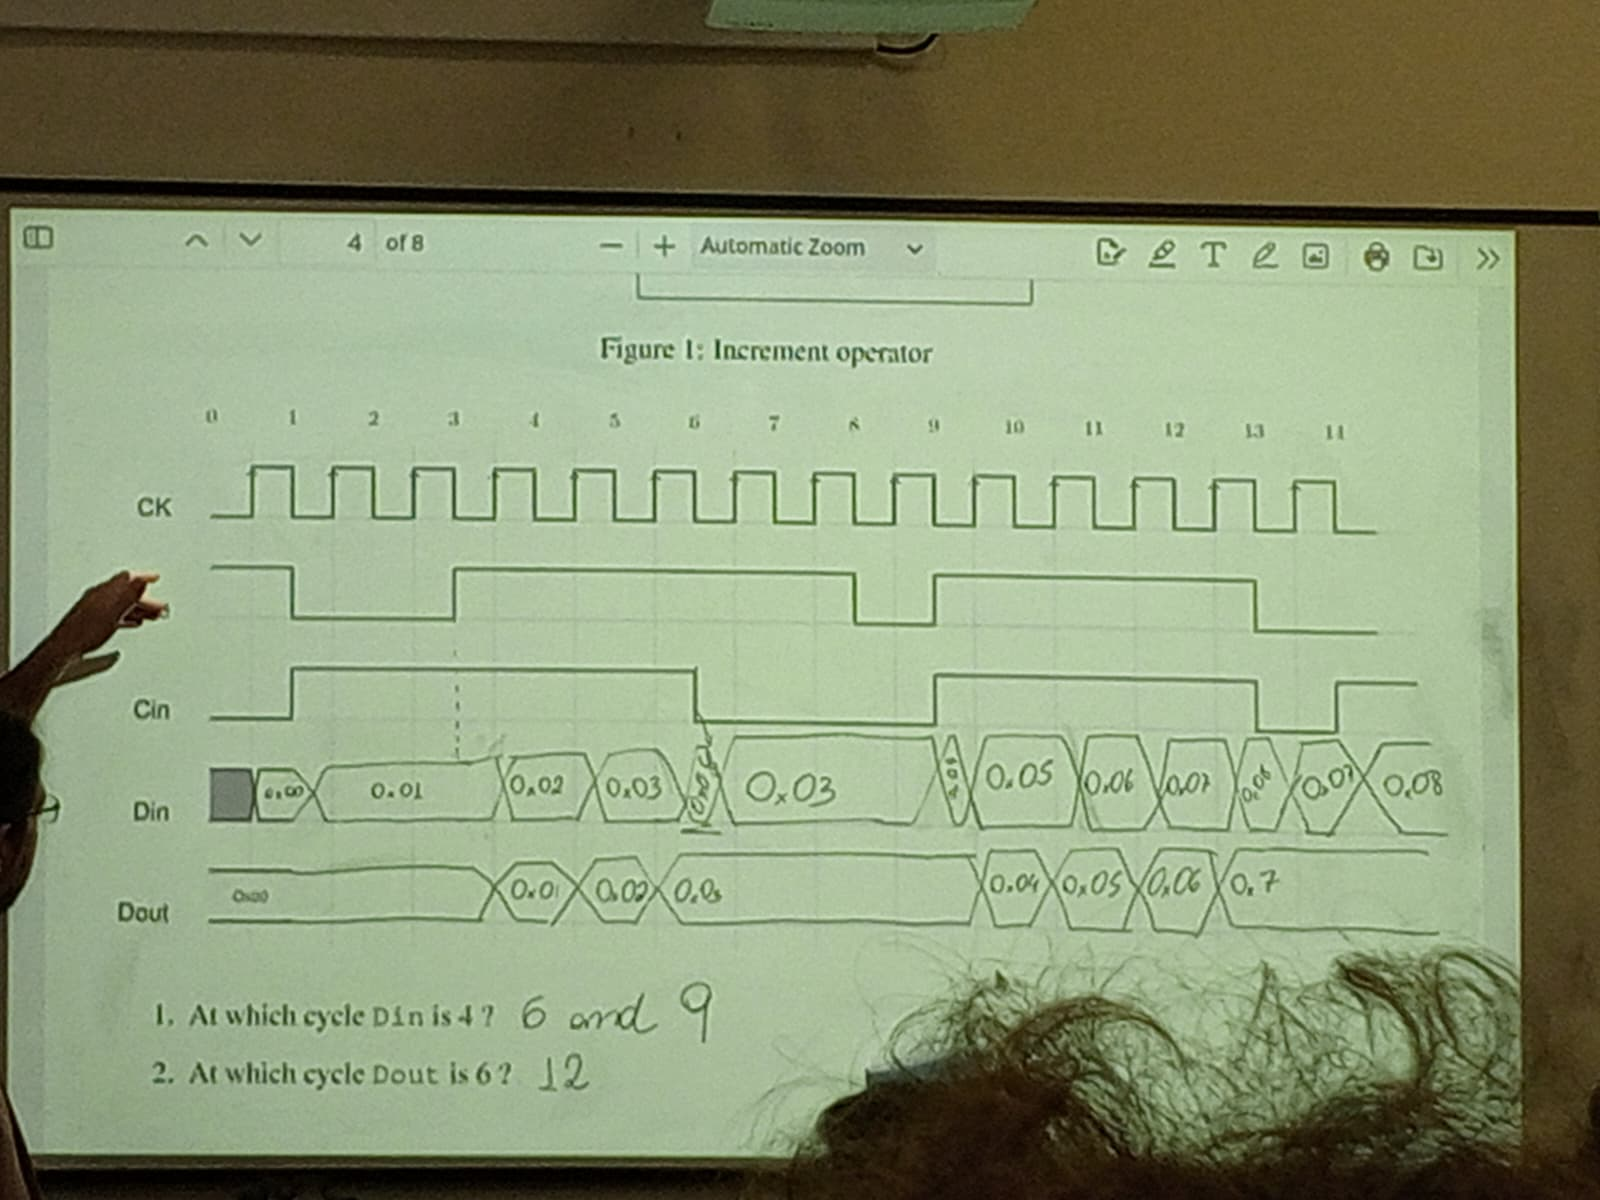 4 of 8 − + Automatic Zoom
Figure 1: Increment operator
0 1 2 3 4 5 6 7 8 9 10 11 12 13 14
CK
Cin
Din 0x00 0x01 0x02 0x03 0x03 0x05 0x06 0x07 0x08 0x07 0x08
Dout 0x00 0x01 0x02 0x03 0x04 0x05 0x06 0x7
1. At which cycle Din is 4? 6 and 9
2. At which cycle Dout is 6? 12